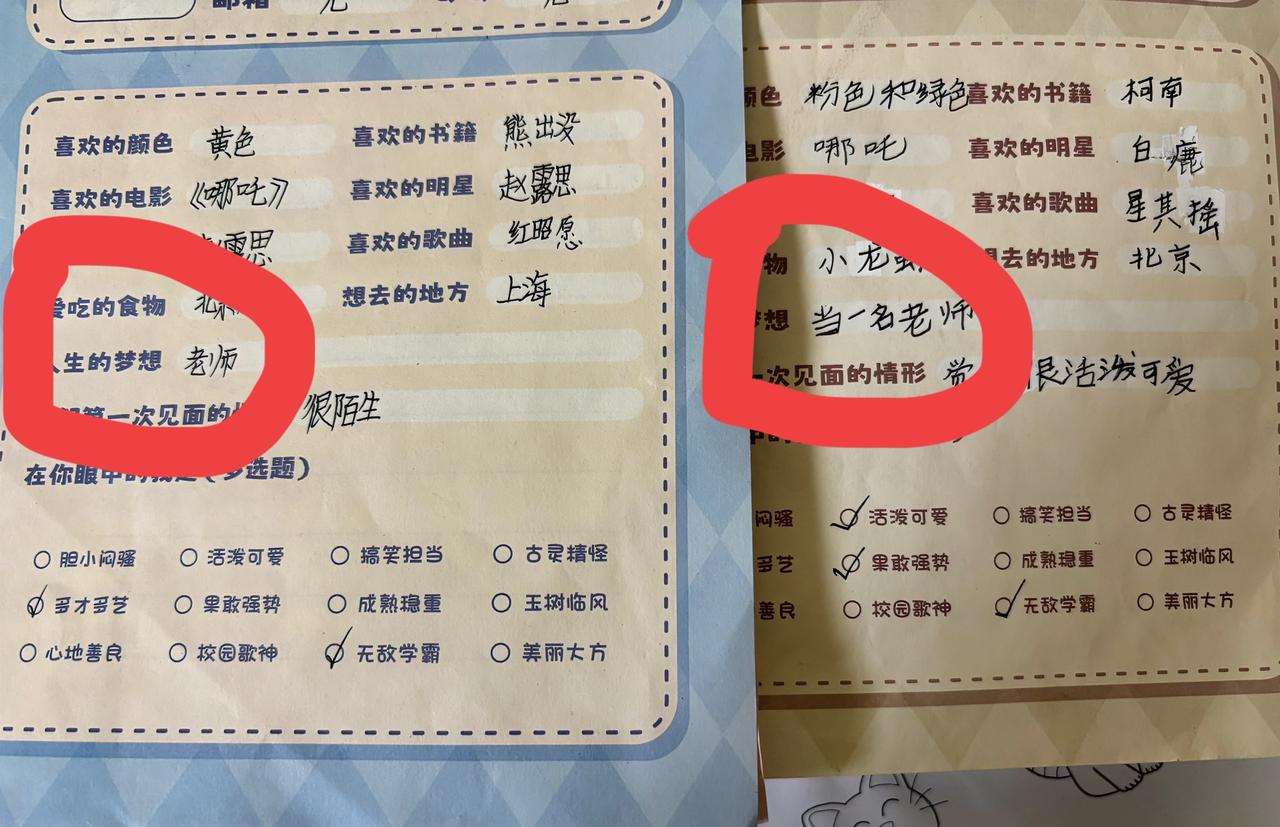 邮箱 无
喜欢的颜色 黄色 喜欢的书籍 熊出没
喜欢的电影 《哪吒》 喜欢的明星 赵露思
露思 喜欢的歌曲 红昭愿
爱吃的食物 想去的地方 上海
人生的梦想 老师
第一次见面的 很陌生
在你眼中的我是(多选题)
胆小闷骚 活泼可爱 搞笑担当 古灵精怪
多才多艺 果敢强势 成熟稳重 玉树临风
心地善良 校园歌神 无敌学霸 美丽大方
颜色 粉色和绿色 喜欢的书籍 柯南
电影 哪吒 喜欢的明星 白鹿
喜欢的歌曲 星其摇
物 小龙虾 想去的地方 北京
梦想 当一名老师
一次见面的情形 觉 很活泼可爱
闷骚 活泼可爱 搞笑担当 古灵精怪
多艺 果敢强势 成熟稳重 玉树临风
善良 校园歌神 无敌学霸 美丽大方